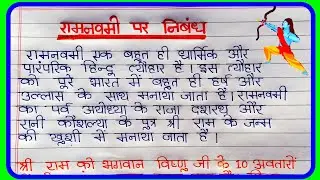 रामनवमी पर निबंध
रामनवमी एक बहुत ही धार्मिक और
पारंपरिक हिन्दू त्यौहार है। इस त्यौहार
को पूरे भारत में बहुत ही हर्ष और
उल्लास के साथ मनाया जाता है। रामनवमी
का पर्व अयोध्या के राजा दशरथ और
रानी कौशल्या के पुत्र श्री राम के जन्म
की खुशी में मनाया जाता है।
श्री राम को भगवान विष्णु जी के 10 अवतारों